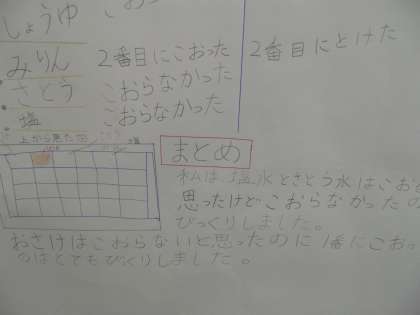 しょうゆ
みりん 2番目にこおった 2番目にとけた
さとう こおらなかった
塩 こおらなかった
上から見た
まとめ
私は塩水とさとう水はこお
思ったけどこおらなかったの
びっくりしました。
おさけはこおらないと思ったのに1番にこお
のはとてもびっくりしました。